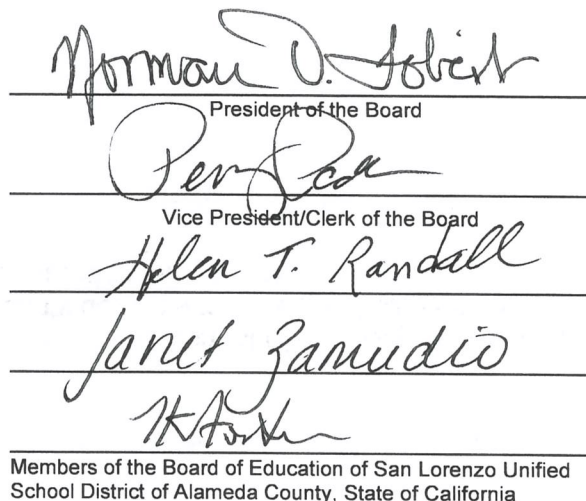 Norman D. Fobert
President of the Board
Vice President/Clerk of the Board
Helen T. Randall
Janet Zamudio
Members of the Board of Education of San Lorenzo Unified
School District of Alameda County, State of California